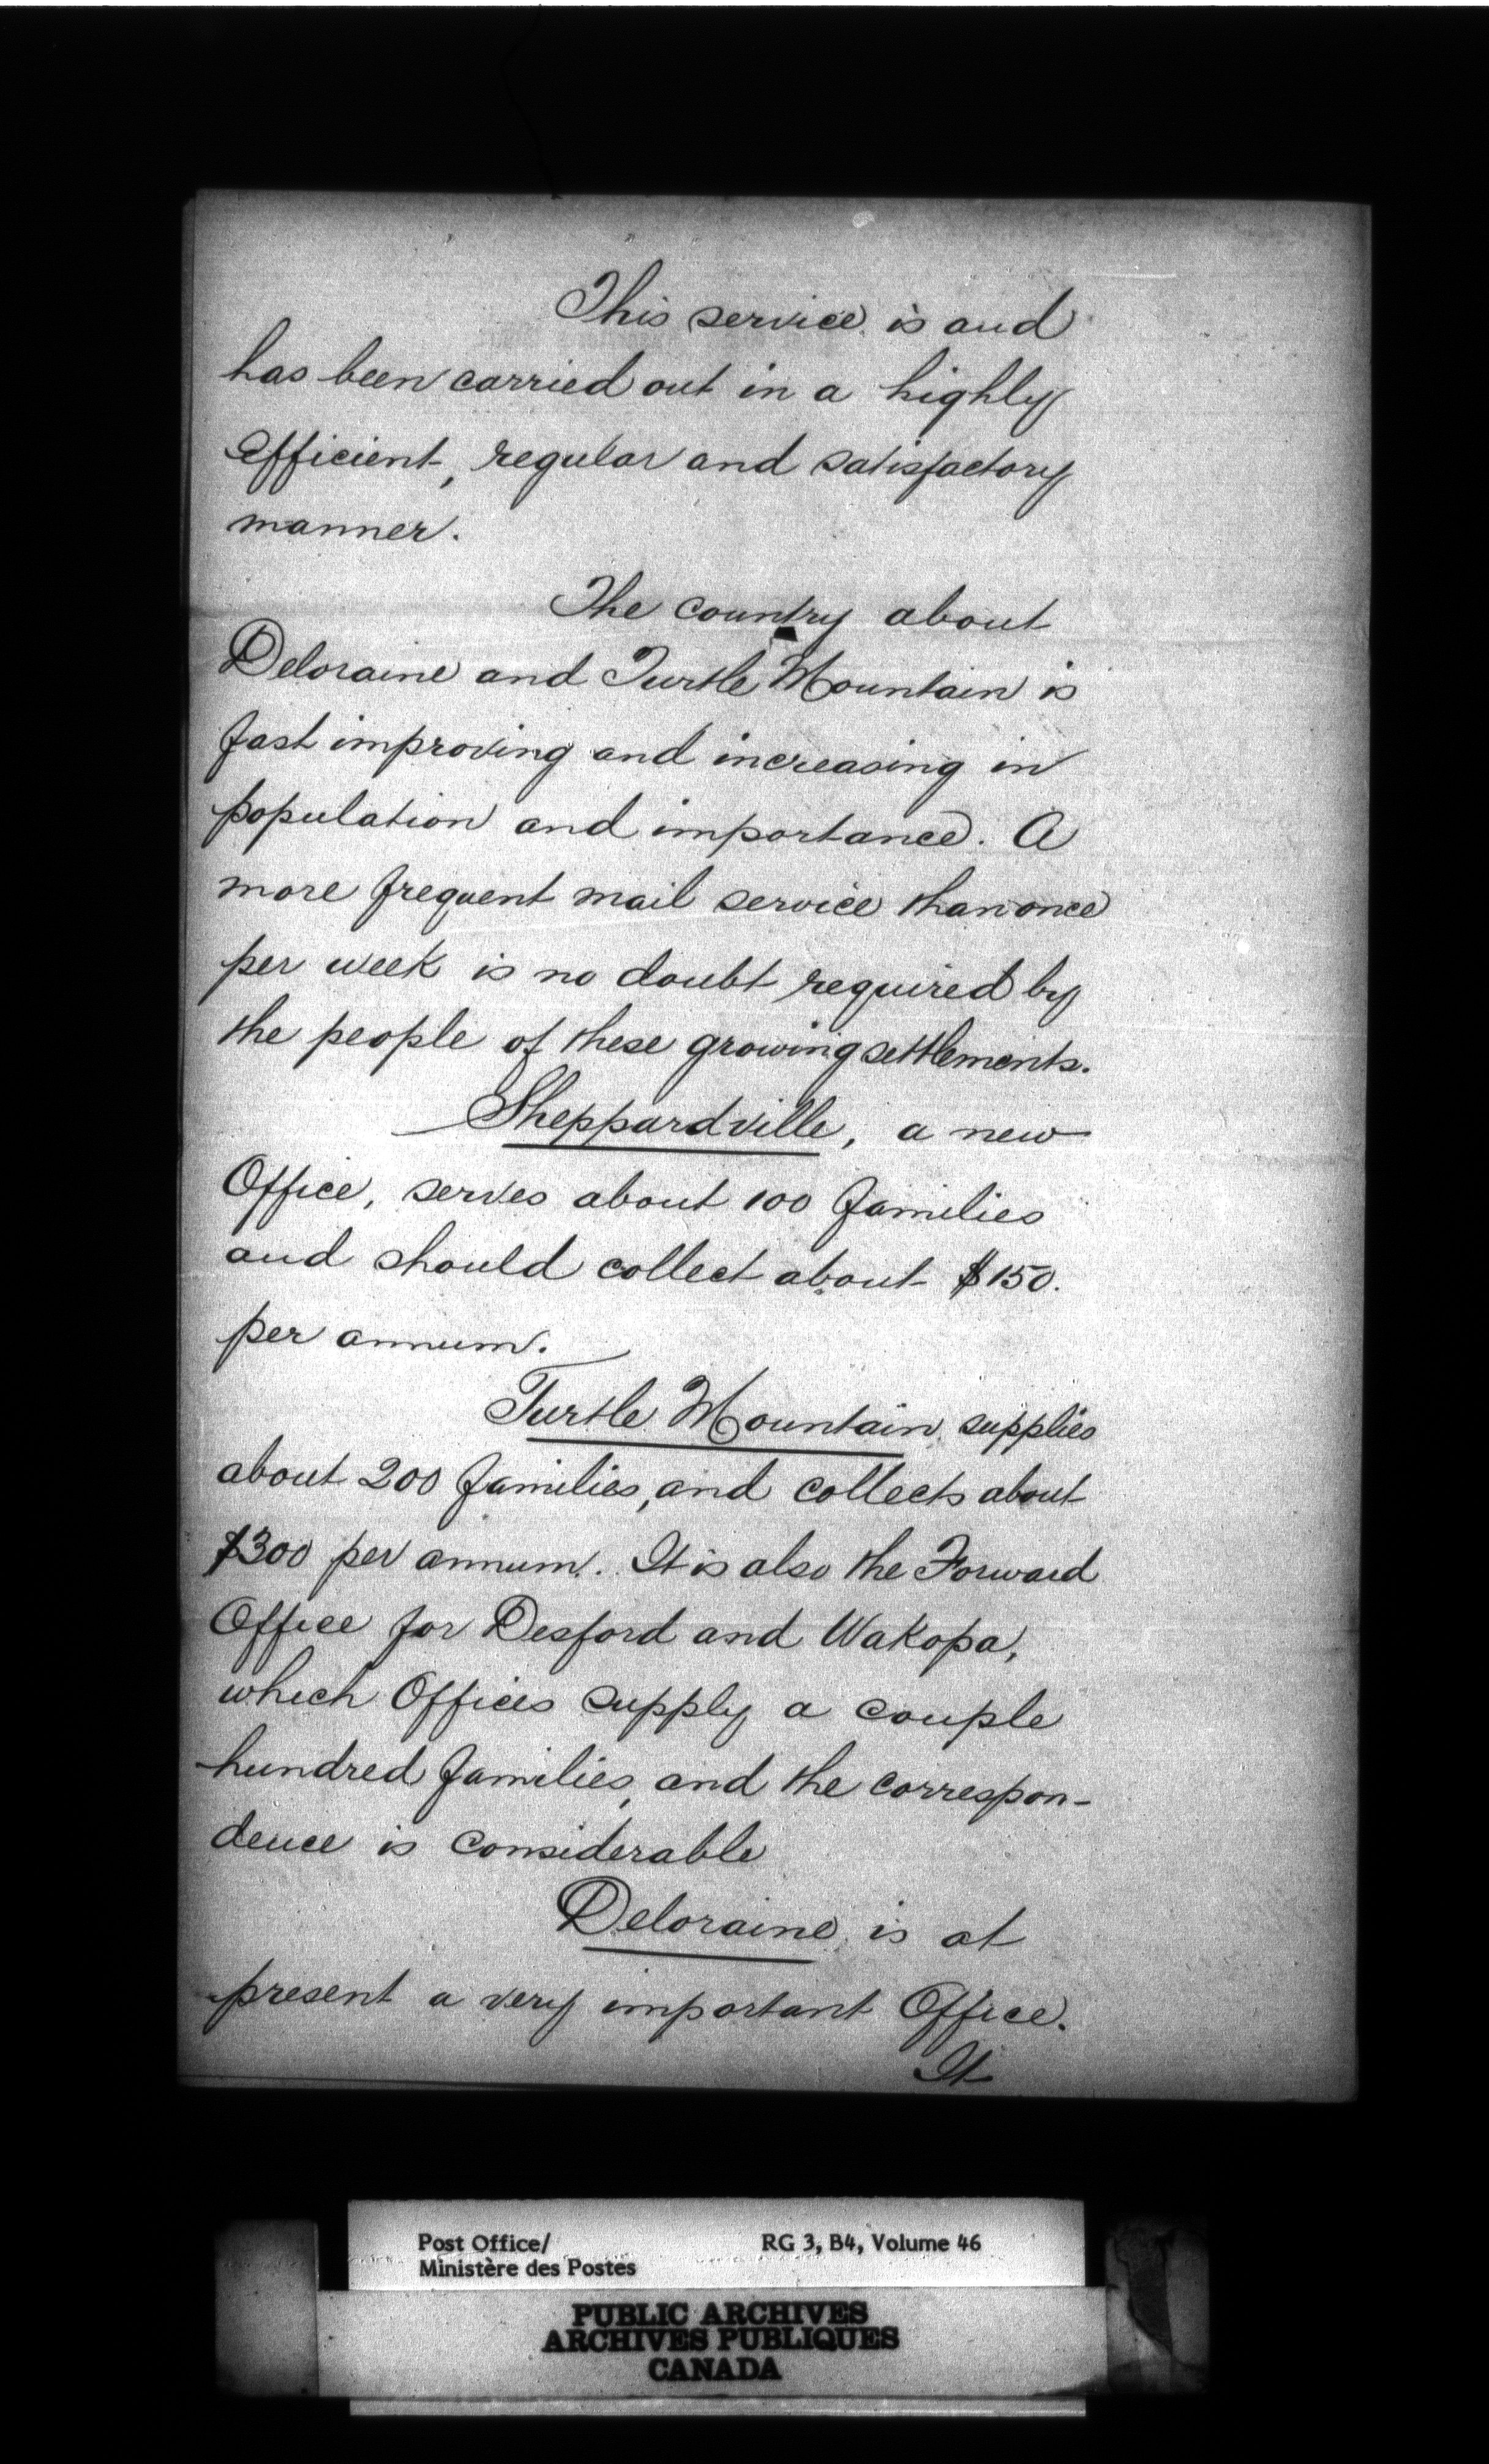 This service is and
has been carried out in a highly
efficient, regular and satisfactory
manner.
The country about
Deloraine and Turtle Mountain is
fast improving and increasing in
population and importance. A
more frequent mail service than once
per week is no doubt required by
the people of these growing settlements.
Sheppardville, a new
Office, serves about 100 families
and should collect about $150.
per annum.
Turtle Mountain supplies
about 200 families, and collects about
$300 per annum. It is also the Forward
Office for Desford and Wakopa,
which Offices supply a couple
hundred families, and the correspon-
dence is considerable
Deloraine is at
present a very important Office.
It
Post Office/ RG 3, B4, Volume 46
Ministère des Postes
PUBLIC ARCHIVES
ARCHIVES PUBLIQUES
CANADA